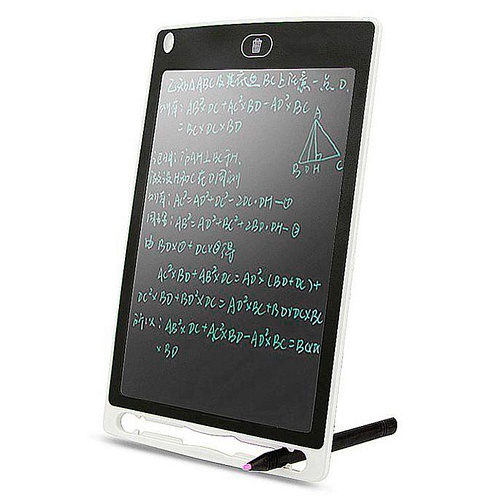 已知△ABC及其底边BC上任意一点D.
则有: AB²DC+AC²×BD-AD²×BC
= BC×DC×BD
A
B D H C
证明: 作AH⊥BC于H.
则有: AC²=AD²+DC²-2DC·DH-①
AB²=AD²+BC²+2BD·DH-②
由 BD×①+DC×②得
AC²×BD+AB²×DC=AD²×(BD+DC)+
DC²×BD+BD²×DC=AD²×BC+BD×DC×BC
所以: AB²×DC+AC²×BD-AD²×BC=BC×DC
×BD